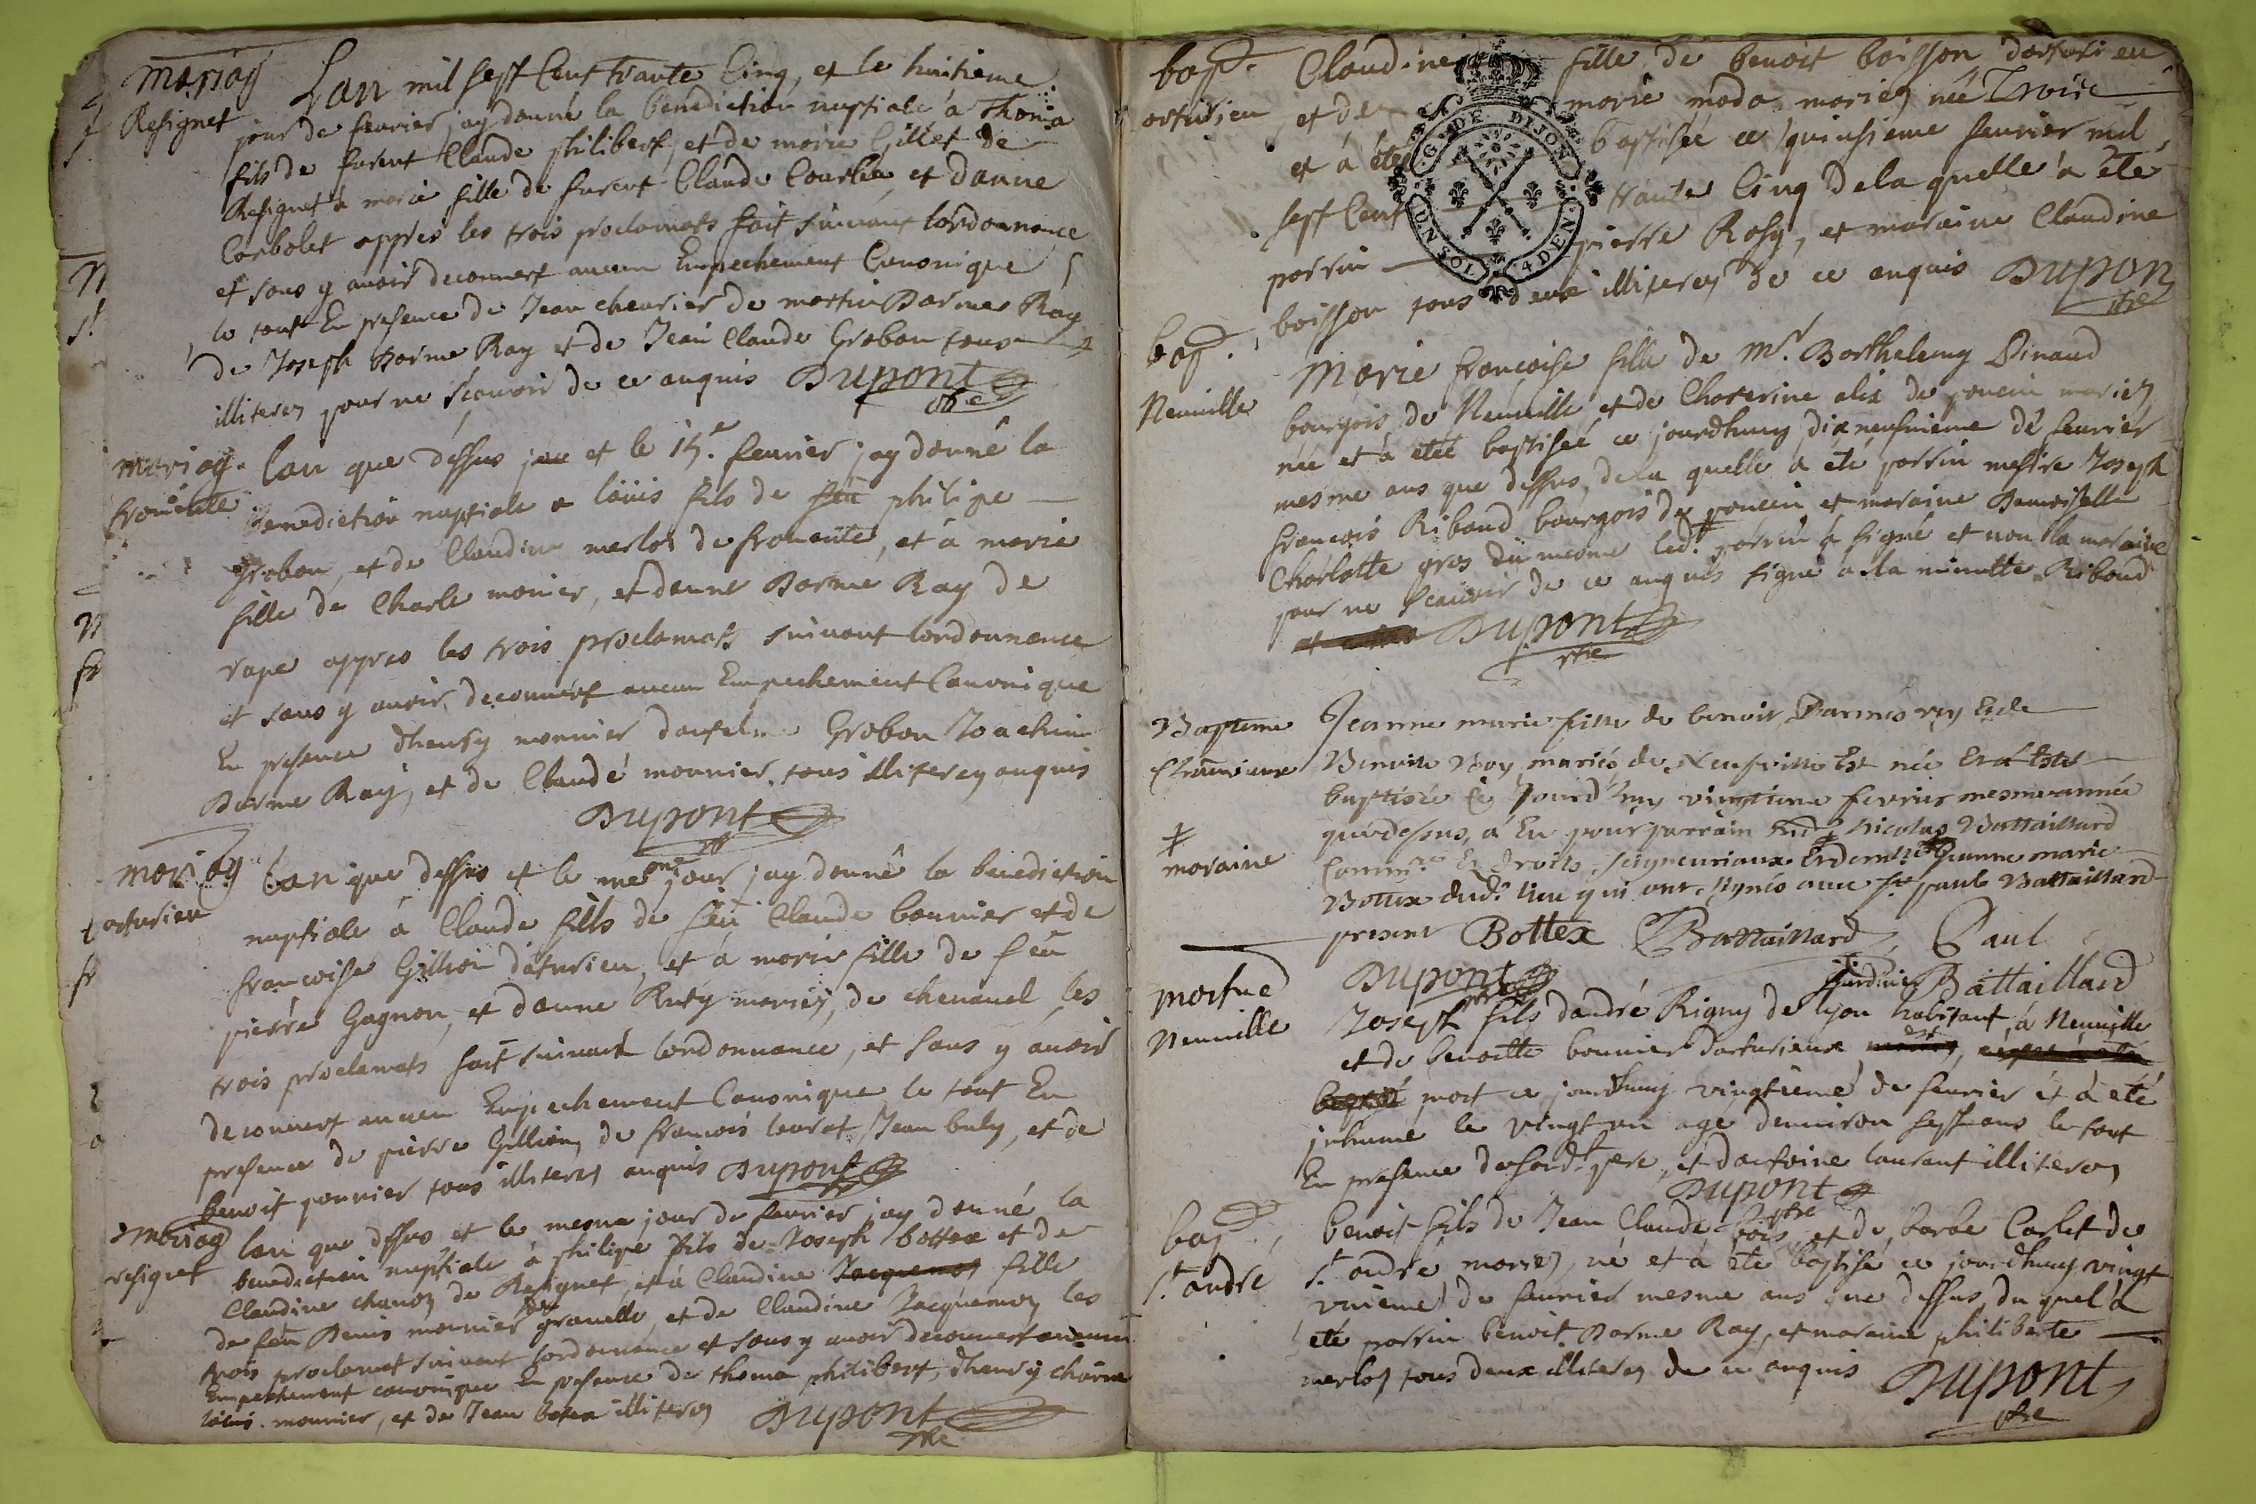 mariag
Resignet
Lan mil sept Cent trante Cinq, et le huitieme
jour de fevrier jay donné la benediction nuptiale à Thoma
fils de furent Claude philibert et de marie Gillet de
Resignet à marie fille de furent Claude et danne
Corbolet appres les trois proclamats fait suivant lordonnance
et sans y avoir decouvert aucun Empechement Canonique
le tout En presence de Jean chevrier de martin Darmes Ray
de Joseph Darme Ray et de Jean Claude Grobon tous
illiteres pour ne scavoir de ce anquis Dupont
ptre
mariag.
fromente
lan que dessus et le 15.e fevrier jay donné la
Benediction nuptiale a loüis fils de feü philipe
Grobon, et de Claudine merlos de fromente, et à marie
fille de Charle monier, et danne Darme Ray de
rape appres les trois proclamats suivant lordonnance
et sans y avoir decouvert aucun Empechement Canonique
En presence dhenry monnier Grobon Joachim
Darme Ray, et de Claude monnier, tous illiteres anquis
Dupont
mariag
arturieu
Lan que dessus et le mesme jour jay donné la benediction
nuptiale à Claude fils de feü Claude bonnier et de
francoise Gillion darturieu, et à marie fille de feü
pierre Gagnon, et danne Ruty maries, de chenavel les
trois proclamats fait suivant lordonnance, et sans y avoir
decouvert aucun Empechement Canonique le tout En
presence de pierre Gillion, de francois laurat Jean buly, et de
benoit ponnier tous illiteres anquis Dupont
mariag
resignet
lan que dessus et le mesme jour de fevrier jay donné la
benediction nuptiale à philipe fils de Joseph bottex et de
Claudine chanos de Resignet, et à Claudine Jacquemos fille
de feü Denis monnier de gravelle, et de Claudine Jacquemos les
trois proclamat suivant lordonnance et sans y avoir decouvert aucun
Empechement canonique En presence de thoma philibert, dhenry
loüis monnier, et de Jean botex illiteres Dupont
ptre
bap.
arturieu
Claudine fille de benoit boisson darturieu
et de marie moda maries née
et à été baptisée ce quinsieme fevrier mil
sept Cent trante Cinq de la quelle à été
parrin pierre Rosy, et maraine Claudine
boisson tous deux illiteres de ce anquis Dupont
ptre
G. DE DIJON
UN SOL 4 DEN.
bap.
Neuville
Marie francoise fille de Mr. Barthelemy Dinaud
bourgois de Neuville et de Chaterine alix de poncin maries
née et à etéé baptiseé ce jourdhuy dixneufvieme de fevrier
mesme ans que dessus, de la quelle à été parrin messire Joseph
francois Riboud bourgois de poncin et maraine Damoiselle
Charlotte gros dü mesme led.t parrin à signé et non la maraine
pour ne scavoir de ce anquis signe a la minutte Riboud
Dupont
ptre
Bapteme
Jeanne marie fille de benoit Darmes rey Et de
Benoite maries de Neufville Est née Et à Esté
baptisée Ce Jourd'huy vingtieme fevrier mesme année
que dessus, à Eu pour parrain Nicolas Battaillard
Comm.re Es droits Seigneuriaux Et dem.lle Jeanne marie
Bottex dud.t lieu qui ont signés avec Sr. paul Battaillard
present Bottex Battaillard, Paul
maraine
Dupont
ptre
Battaillard
mortue
Neuville
Joseph fils dandré Rigny de lyon Jardinier habitant à Neuville
et de benoitte bonnier darturieux est
mort ce jourdhuy vingtieme de fevrier et à eté
inhumé le vingt un agé denviron sept ans le tout
En presence de sond.t pere, et dantoine laurent illiteres
Dupont
ptre
bap.
St. andre
benoit fils de Jean Claude et de barbe Carlet de
St. andre maries, né et à été baptisé ce jourdhuy vingt
unieme de fevrier mesme ans que dessus du quel à
été parrin benoit Darme Ray, et maraine philiberte
merlos tous deux illiteres de ce anquis Dupont
ptre